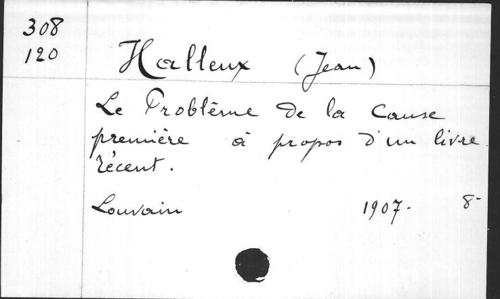 308
120
Halleux (Jean)
Le Problème de la Cause
première à propos d'un livre
récent.
Louvain 1907. 8-